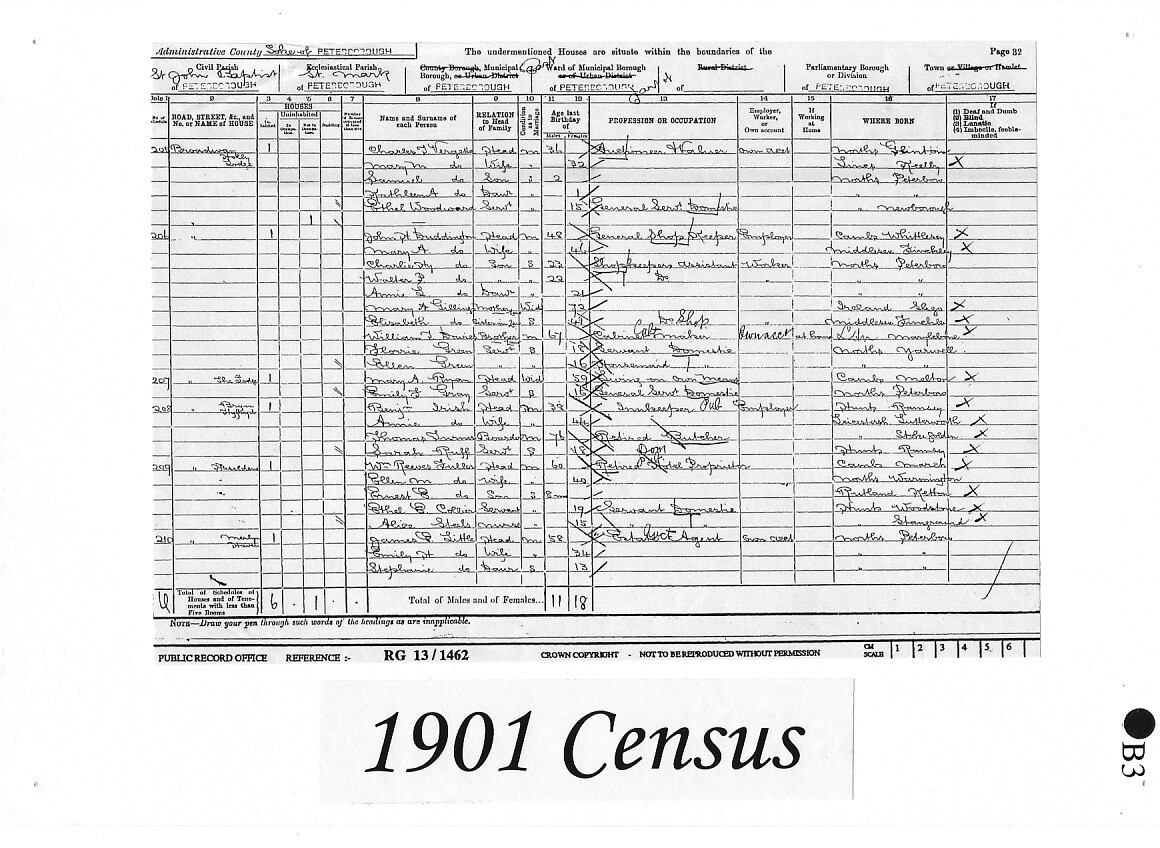 Administrative County Soke of PETERBOROUGH The undermentioned Houses are situate within the boundaries of the Page 32
Civil Parish Ecclesiastical Parish County Borough, Municipal Borough, or Urban District Ward of Municipal Borough or of Urban District Rural District Parliamentary Borough or Division Town or Village or Hamlet
St John Baptist St. Mark
of PETERBOROUGH of PETERBOROUGH of PETERBOROUGH of PETERBOROUGH of of PETERBOROUGH of PETERBOROUGH
2 3 4 5 6 7 8 9 10 11 12 13 14 15 16 17
No. of Schedule ROAD, STREET, &c., and No. or NAME of HOUSE HOUSES Inhabited Uninhabited In Occupation Not in Occupation Building Name and Surname of each Person RELATION to Head of Family Condition as to Marriage Age last Birthday of Males Females PROFESSION OR OCCUPATION Employer, Worker, or Own account If Working at Home WHERE BORN If (1) Deaf and Dumb (2) Blind (3) Lunatic (4) Imbecile, feeble-minded
205 Broadway 1 Charles J Vergette Head M 36 Auctioneer & Valuer own acct Norths Glinton
Mary M. do Wife " 32 Lincs
Samuel do Son " 2 Norths Peterboro
Kathleen A do Daur " 1 " "
Ethel Woodward Servt " 15 General Servt Domestic " Newborough
1
206 " 1 John H Duddington Head M 48 General Shop Keeper Employer Cambs Whittlesey
Mary A. do Wife " 46 Middlesex Finchley
Charlie Hy do Son S 23 Shopkeepers assistant Worker Norths Peterboro
Walter do " " 22 Do " "
Annie do Daur " 21 " "
Mary A Mother Wid 72 Ireland Sligo
Elizabeth do Sister in law S 41 Do Shop " Middlesex Finchley
William Davies Brother M 67 Cabinet Maker Own acct at home Ldn Marylebone
Florrie Green Servt S 18 Servant Domestic Norths Yarwell
Ellen Green " " 16 Housemaid " "
207 " The Lodge 1 Mary A. Ryan Head Wid 59 Living on own Means Cambs
Emily Gray Servt S 15 General Servt Domestic Norths Peterboro
208 " 1 Benjn Irish Head M 38 Innkeeper Pub Employer Hunts Ramsey
Annie do Wife " 44 Leicestersh Lutterworth
Thomas Turner Boarder M 76 Retired Butcher " Stoke Golding
Sarah Ruff Servt S 18 Dom Hunts Ramsey
209 " 1 Wm Reeves Fuller Head M 60 Retired Hotel Proprietor Cambs March
Ellen M. do Wife " 40 Norths Warmington
Ernest do Son S 8 mo Rutland Ketton
Ethel Collier Servant " 19 Servant Domestic Hunts Woodstone
Alice Steels Nurse " 15 " " " Stanground
210 " 1 James Little Head M 58 Estate Agent own acct Norths Peterboro
Emily H do Wife " 34 " "
Stephanie do Daur S 13 " "
Total of Schedules of Houses and of Tenements with less than Five Rooms 6 . 1 . . Total of Males and of Females... 11 18
NOTE—Draw your pen through such words of the headings as are inapplicable.
PUBLIC RECORD OFFICE REFERENCE :- RG 13/1462 CROWN COPYRIGHT - NOT TO BE REPRODUCED WITHOUT PERMISSION CM SCALE 1 2 3 4 5 6
1901 Census
B3